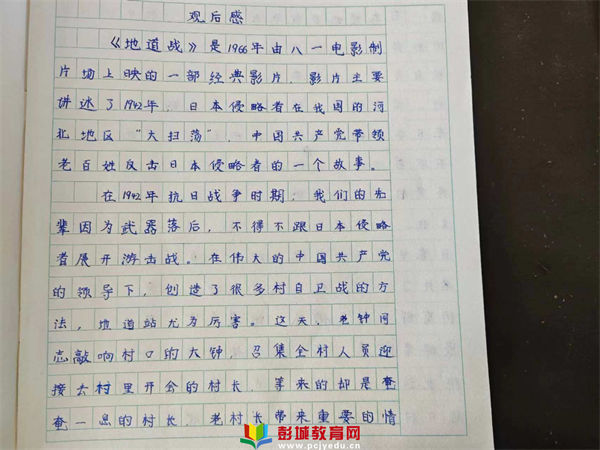 观后感
《地道战》是1966年由八一电影制
片场上映的一部经典影片，影片主要
讲述了1942年，日本侵略者在我国的河
北地区“大扫荡”，中国共产党带领
老百姓反击日本侵略者的一个故事。
在1942年抗日战争时期，我们的先
辈因为武器落后，不得不跟日本侵略
者展开游击战。在伟大的中国共产党
的领导下，创造了很多村自卫战的方
法，地道站尤为厉害。这天，老钟同
志敲响村口的大钟，召集全村人员迎
接去村里开会的村长，等来的却是奄
奄一息的村长，老村长带来重要的情
彭城教育网
www.pcjyedu.cn